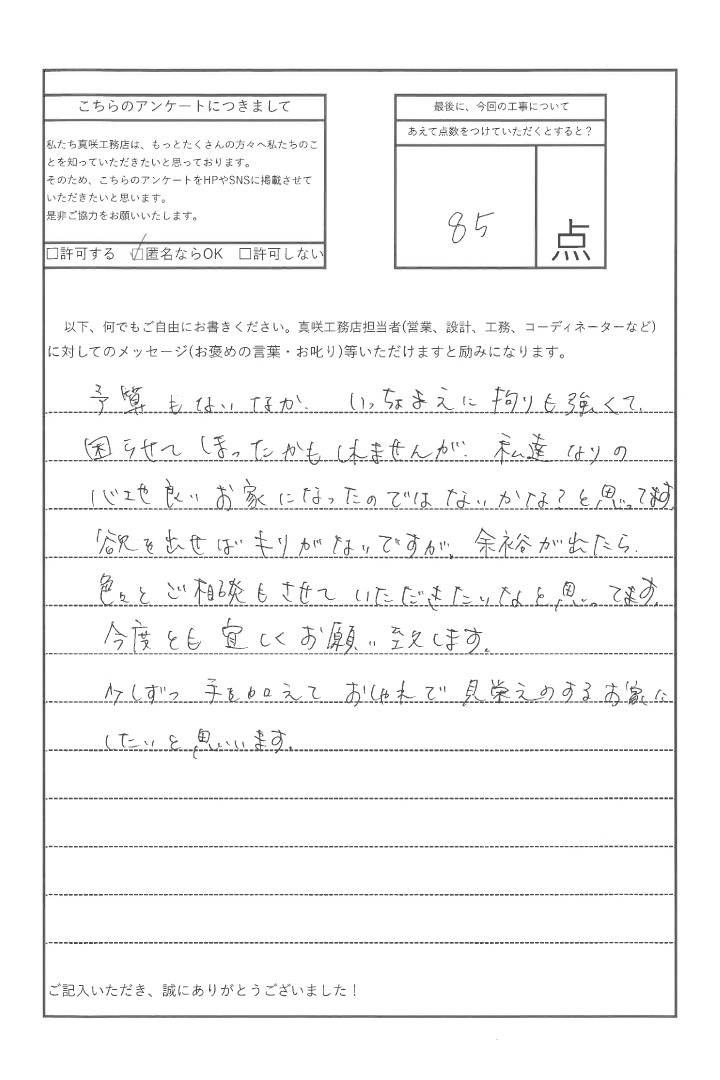 こちらのアンケートにつきまして
私たち真咲工務店は、もっとたくさんの方々へ私たちのこ
とを知っていただきたいと思っております。
そのため、こちらのアンケートをHPやSNSに掲載させて
いただきたいと思います。
是非ご協力をお願いいたします。
□許可する ☑匿名ならOK □許可しない
最後に、今回の工事について
あえて点数をつけていただくとすると？
85 点
以下、何でもご自由にお書きください。真咲工務店担当者(営業、設計、工務、コーディネーターなど)
に対してのメッセージ(お褒めの言葉・お叱り)等いただけますと励みになります。
予算もないなか、いっちょまえに拘りも強くて、
困らせてしまったかもしれませんが、私達なりの
心地良いお家になったのではないかな？と思ってます。
欲を出せばキリがないですが、余裕が出たら、
色々とご相談もさせていただきたいなと思ってます。
今度とも宜しくお願い致します。
少しずつ手を加えておしゃれで見栄えのするお家に
したいと思いいます。
ご記入いただき、誠にありがとうございました！